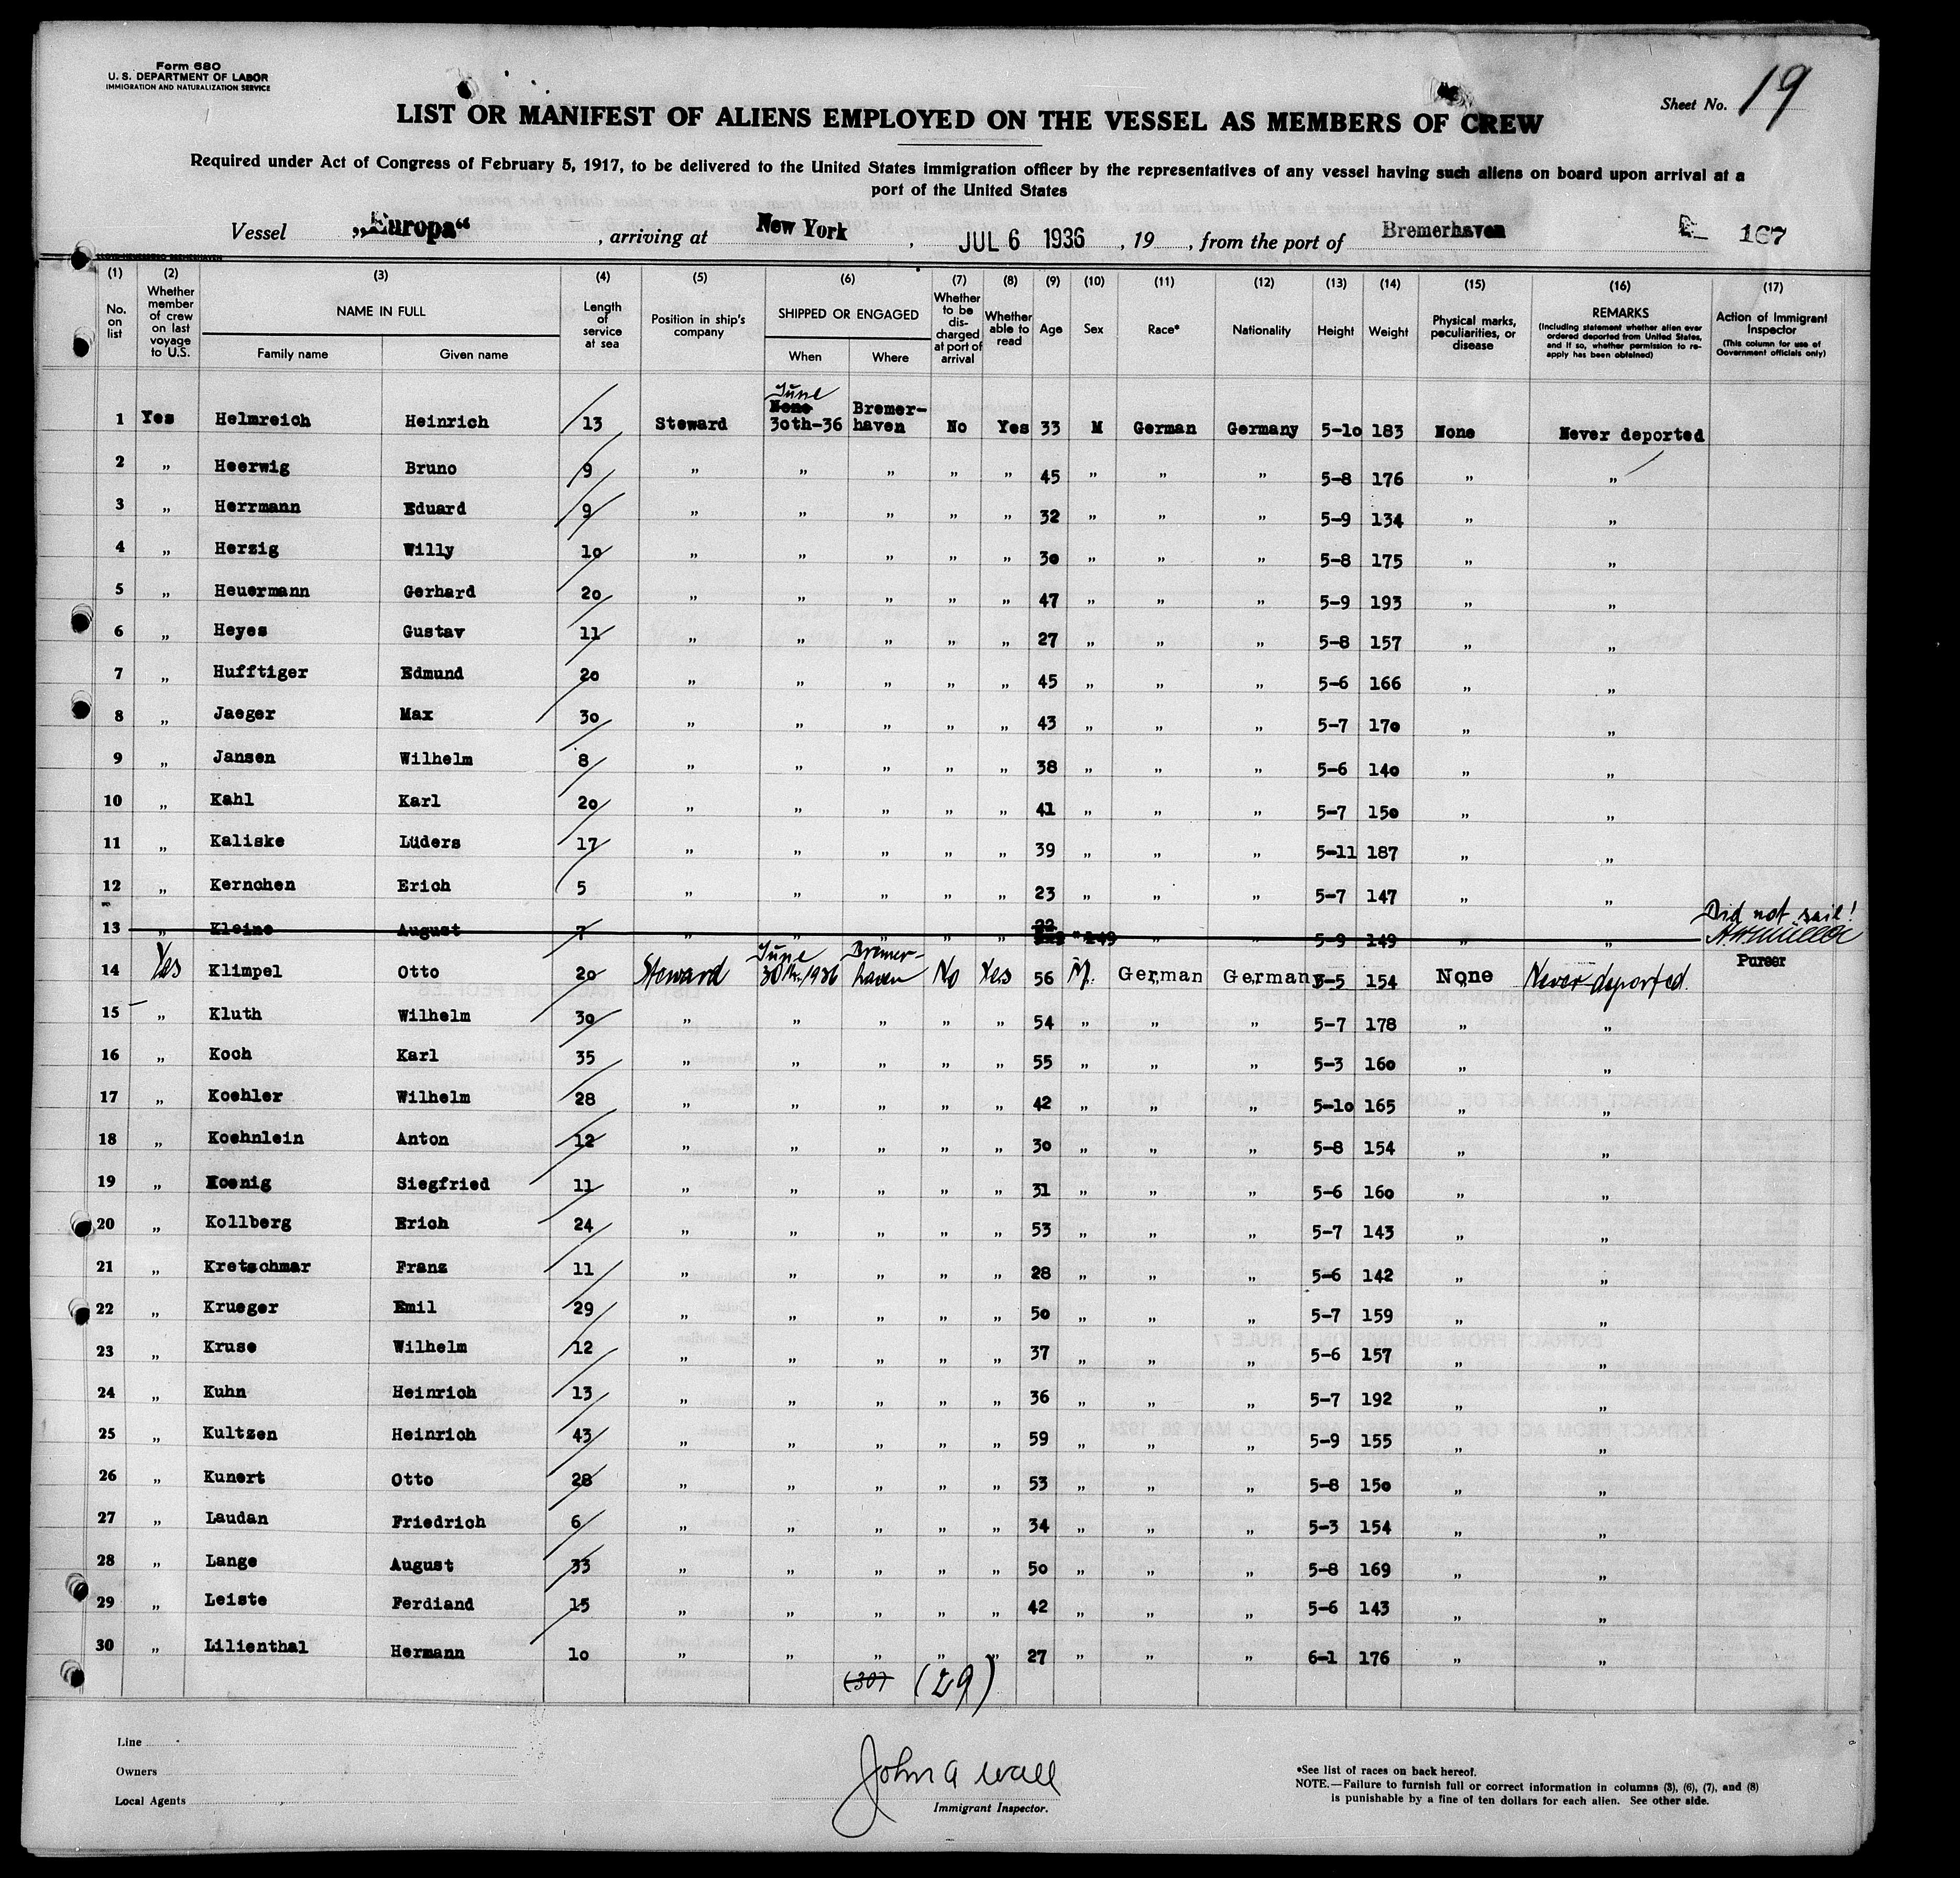 Form 680
U. S. DEPARTMENT OF LABOR
IMMIGRATION AND NATURALIZATION SERVICE
Sheet No. 19
LIST OR MANIFEST OF ALIENS EMPLOYED ON THE VESSEL AS MEMBERS OF CREW
Required under Act of Congress of February 5, 1917, to be delivered to the United States immigration officer by the representatives of any vessel having such aliens on board upon arrival at a
port of the United States
Vessel „Europa“, arriving at New York, JUL 6 1936, 19, from the port of Bremerhaven 167
(1) (2) (3) (4) (5) (6) (7) (8) (9) (10) (11) (12) (13) (14) (15) (16) (17)
No. on list
Whether member of crew on last voyage to U.S.
NAME IN FULL
Family name Given name
Length of service at sea
Position in ship's company
SHIPPED OR ENGAGED
When Where
Whether to be discharged at port of arrival
Whether able to read
Age
Sex
Race*
Nationality
Height
Weight
Physical marks, peculiarities, or disease
REMARKS
(Including statement whether alien ever ordered deported from United States, and if so, whether permission to re-apply has been obtained)
Action of Immigrant Inspector
(This column for use of Government officials only)
1 Yes Helmreich Heinrich 13 Steward June None 30th-36 Bremer-haven No Yes 33 M German Germany 5-10 183 None Never deported
2 „ Heerwig Bruno 9 „ „ „ „ „ 45 „ „ „ 5-8 176 „ „
3 „ Herrmann Eduard 9 „ „ „ „ „ 32 „ „ „ 5-9 134 „ „
4 „ Herzig Willy 10 „ „ „ „ „ 30 „ „ „ 5-8 175 „ „
5 „ Heuermann Gerhard 20 „ „ „ „ „ 47 „ „ „ 5-9 193 „ „
6 „ Heyes Gustav 11 „ „ „ „ „ 27 „ „ „ 5-8 157 „ „
7 „ Hufftiger Edmund 20 „ „ „ „ „ 45 „ „ „ 5-6 166 „ „
8 „ Jaeger Max 30 „ „ „ „ „ 43 „ „ „ 5-7 170 „ „
9 „ Jansen Wilhelm 8 „ „ „ „ „ 38 „ „ „ 5-6 140 „ „
10 „ Kahl Karl 20 „ „ „ „ „ 41 „ „ „ 5-7 150 „ „
11 „ Kaliske Lüders 17 „ „ „ „ „ 39 „ „ „ 5-11 187 „ „
12 „ Kernchen Erich 5 „ „ „ „ „ 23 „ „ „ 5-7 147 „ „
13 „ Kleine August 7 „ „ „ „ 22 „ 149 „ „ 5-9 149 „ „ Did not sail!
Purser
14 Yes Klimpel Otto 20 Steward June 30th, 1936 Bremer-haven No Yes 56 M. German Germany 5-5 154 None Never deported.
15 „ Kluth Wilhelm 30 „ „ „ „ „ 54 „ „ „ 5-7 178 „ „
16 „ Koch Karl 35 „ „ „ „ „ 55 „ „ „ 5-3 160 „ „
17 „ Koehler Wilhelm 28 „ „ „ „ „ 42 „ „ „ 5-10 165 „ „
18 „ Koehnlein Anton 12 „ „ „ „ „ 30 „ „ „ 5-8 154 „ „
19 „ Koenig Siegfried 11 „ „ „ „ „ 31 „ „ „ 5-6 160 „ „
20 „ Kollberg Erich 24 „ „ „ „ „ 53 „ „ „ 5-7 143 „ „
21 „ Kretschmar Franz 11 „ „ „ „ „ 28 „ „ „ 5-6 142 „ „
22 „ Krueger Emil 29 „ „ „ „ „ 50 „ „ „ 5-7 159 „ „
23 „ Kruse Wilhelm 12 „ „ „ „ „ 37 „ „ „ 5-6 157 „ „
24 „ Kuhn Heinrich 13 „ „ „ „ „ 36 „ „ „ 5-7 192 „ „
25 „ Kultzen Heinrich 43 „ „ „ „ „ 59 „ „ „ 5-9 155 „ „
26 „ Kunert Otto 28 „ „ „ „ „ 53 „ „ „ 5-8 150 „ „
27 „ Laudan Friedrich 6 „ „ „ „ „ 34 „ „ „ 5-3 154 „ „
28 „ Lange August 33 „ „ „ „ „ 50 „ „ „ 5-8 169 „ „
29 „ Leiste Ferdiand 15 „ „ „ „ „ 42 „ „ „ 5-6 143 „ „
30 „ Lilienthal Hermann 10 „ „ „ „ „ 27 „ „ „ 6-1 176 „ „
(30) (29)
Line
Owners
Local Agents
John A Wall
Immigrant Inspector.
*See list of races on back hereof.
NOTE.—Failure to furnish full or correct information in columns (3), (6), (7), and (8)
is punishable by a fine of ten dollars for each alien. See other side.